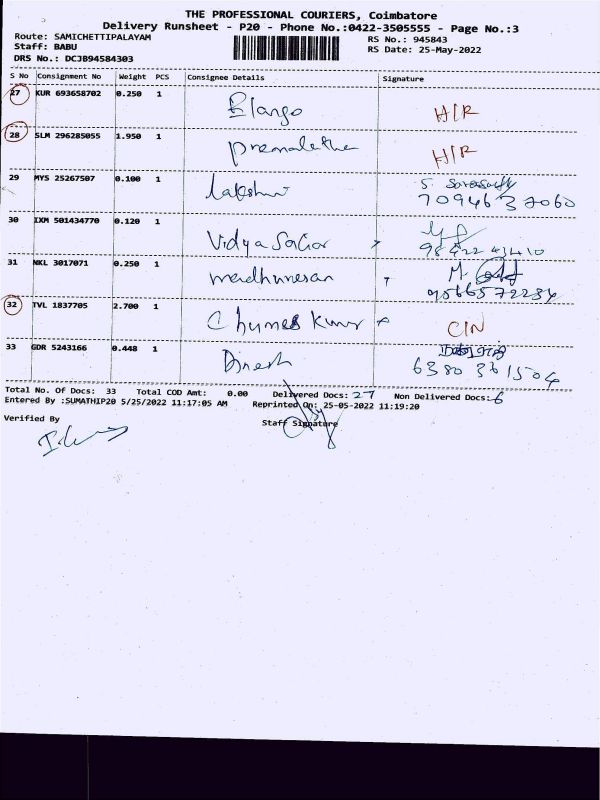 THE PROFESSIONAL COURIERS, Coimbatore
Delivery Runsheet - P20 - Phone No.:0422-3505555 - Page No.:3
Route: SAMICHETTIPALAYAM RS No.: 945843
Staff: BABU RS Date: 25-May-2022
DRS No.: DCJB94584303
S No Consignment No Weight PCS Consignee Details Signature
27 KUR 693658702 0.250 1 Elango H/R
28 SLM 296285055 1.950 1 Premalatha H/R
29 MYS 25267507 0.100 1 Lakshmi S. Saraswathy
7094637060
30 IXM 501434770 0.120 1 Vidya Sagar
98422 43410
31 NKL 3017071 0.250 1 M.
9566572234
32 TVL 1837705 2.700 1 Kumar CIN
33 GDR 5243166 0.448 1 Dinesh
6380361504
Total No. Of Docs: 33 Total COD Amt: 0.00 Delivered Docs: 27 Non Delivered Docs: 6
Entered By :SUMATHIP20 5/25/2022 11:17:05 AM Reprinted On: 25-05-2022 11:19:20
Verified By Staff Signature